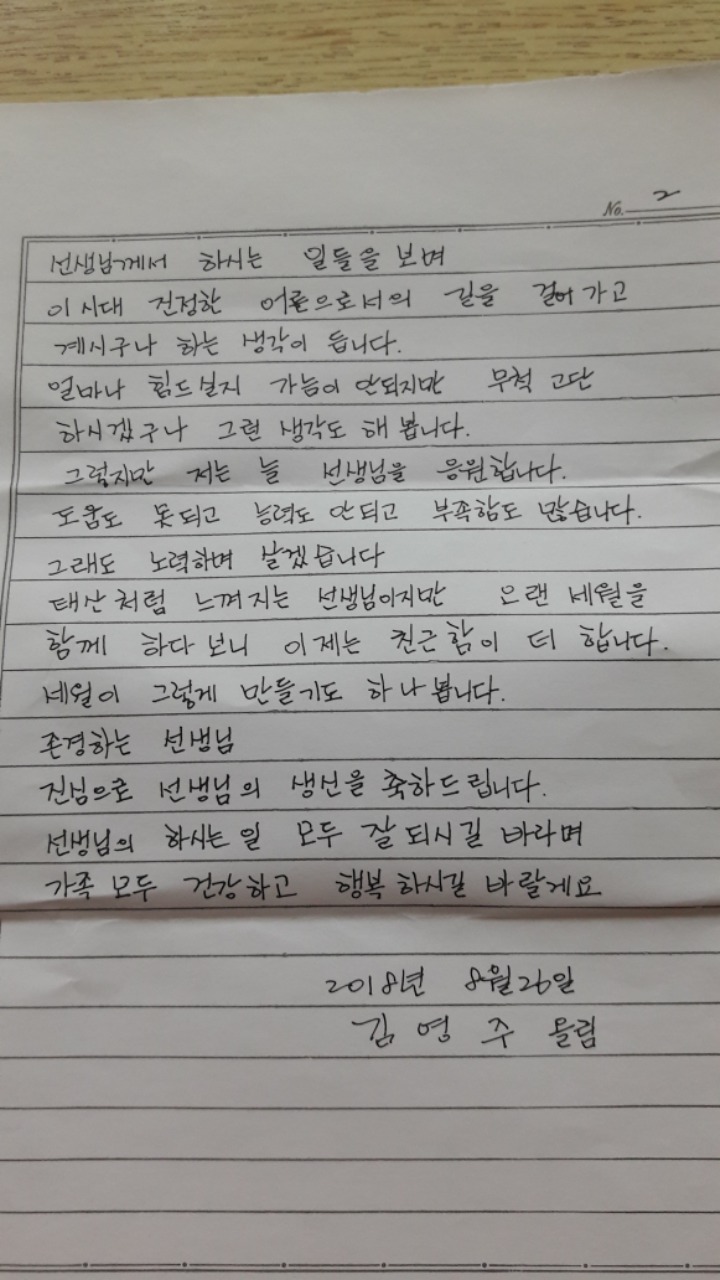 No. 2
선생님께서 하시는 일들을 보며
이 시대 진정한 어른으로서의 길을 걸어 가고
계시구나 하는 생각이 듭니다.
얼마나 힘드실지 가늠이 안되지만 무척 고단
하시겠구나 그런 생각도 해 봅니다.
그렇지만 저는 늘 선생님을 응원합니다.
도움도 못되고 능력도 안되고 부족함도 많습니다.
그래도 노력하며 살겠습니다
태산처럼 느껴지는 선생님이지만 오랜 세월을
함께 하다보니 이제는 친근함이 더 합니다.
세월이 그렇게 만들기도 하나봅니다.
존경하는 선생님
진심으로 선생님의 생신을 축하드립니다.
선생님의 하시는 일 모두 잘 되시길 바라며
가족 모두 건강하고 행복하시길 바랄게요
2018년 8월 26일
김영주 올림